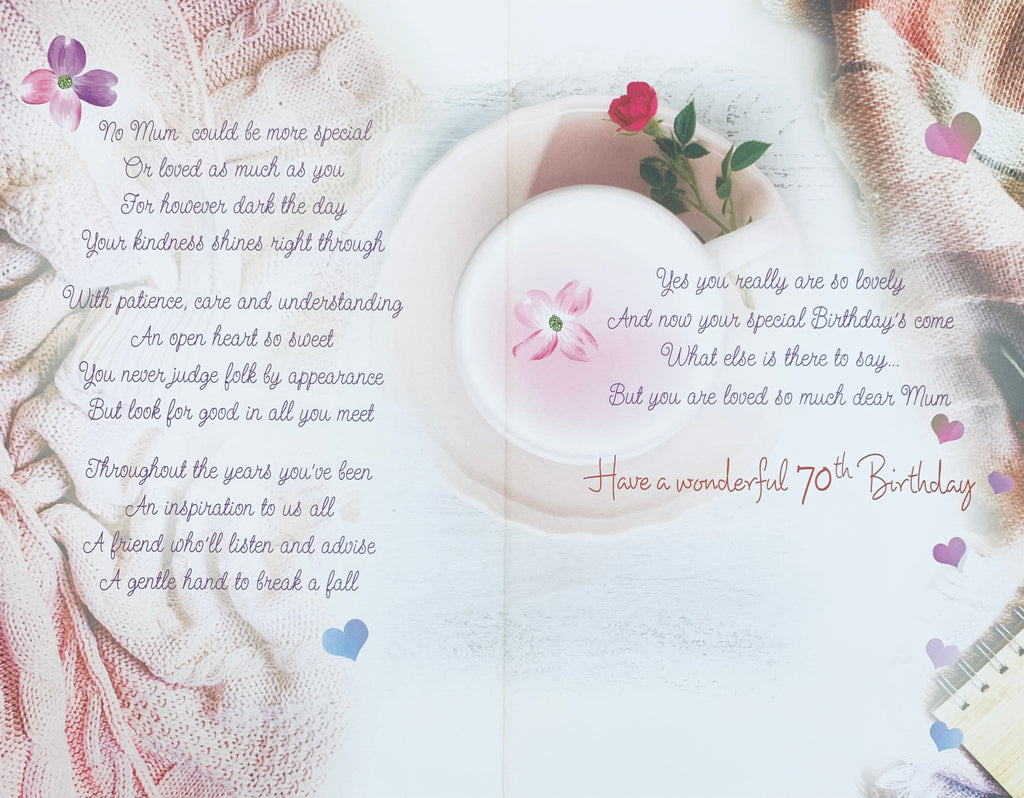 No Mum could be more special
Or loved as much as you
For however dark the day
Your kindness shines right through
With patience, care and understanding
An open heart so sweet
You never judge folk by appearance
But look for good in all you meet
Throughout the years you've been
An inspiration to us all
A friend who'll listen and advise
A gentle hand to break a fall
Yes you really are so lovely
And now your special Birthday's come
What else is there to say...
But you are loved so much dear Mum
Have a wonderful 70th Birthday